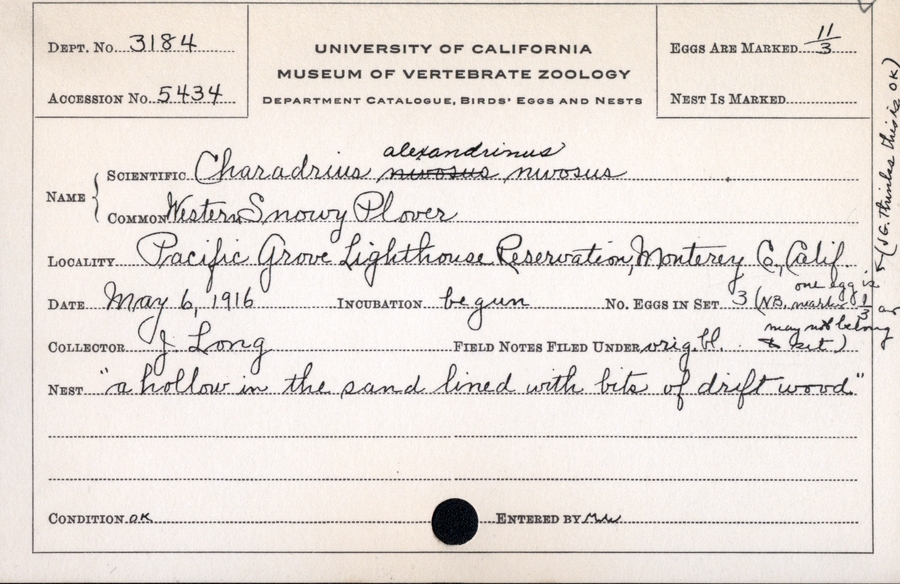 DEPT. NO. 3184
ACCESSION NO. 5434
UNIVERSITY OF CALIFORNIA
MUSEUM OF VERTEBRATE ZOOLOGY
DEPARTMENT CATALOGUE, BIRDS' EGGS AND NESTS
EGGS ARE MARKED 11/3
NEST IS MARKED
alexandrinus
NAME { SCIENTIFIC Charadrius nivosus nivosus
COMMON Western Snowy Plover
LOCALITY Pacific Grove Lighthouse Reservation, Monterey C., Calif.
DATE May 6, 1916 INCUBATION begun NO. EGGS IN SET 3 (NB. one egg is marked 1/3 &
may not belong
to set)
(JG. thinks this is OK)
COLLECTOR J. Long FIELD NOTES FILED UNDER orig. bl.
NEST "a hollow in the sand lined with bits of drift wood."
CONDITION OK ENTERED BY